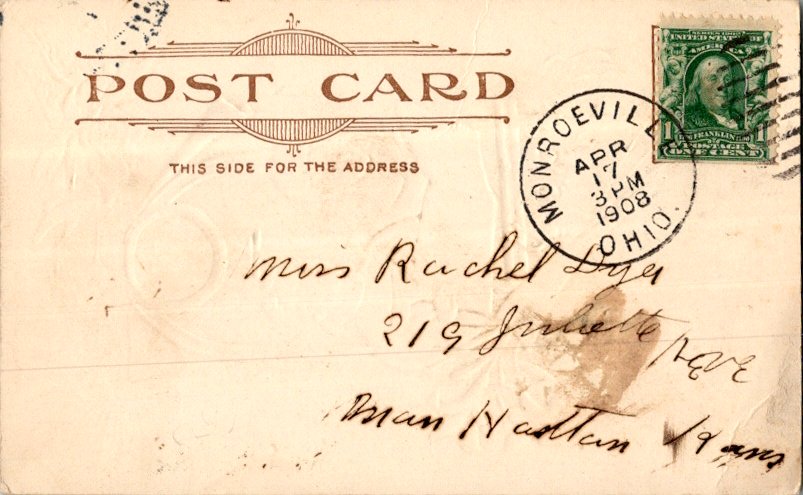 SERIES 1902
UNITED STATES OF
AMERICA
POST CARD
1 FRANKLIN 1
POSTAGE
ONE CENT
THIS SIDE FOR THE ADDRESS
MONROEVILLE
APR
17
3 PM
1908
OHIO.
Miss Rachel Dyer
219 Juliette Ave
Man Hattan Kans